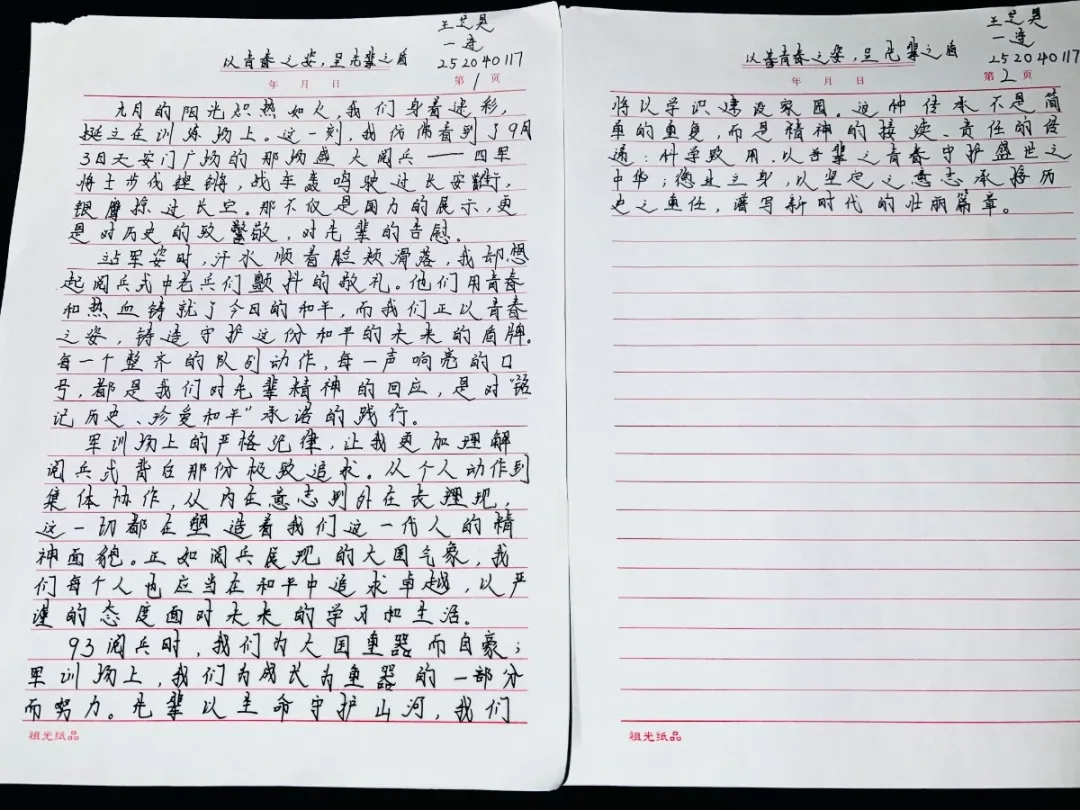 王芝昊
一连
252040117
以青春之姿，呈先辈之盾
年 月 日
第1页
九月的阳光炽热如火，我们身着迷彩，
挺立在训练场上。这一刻，我仿佛看到了9月
3日天安门广场的那场盛大阅兵——四军
将士步伐铿锵，战车轰鸣驶过长安街，
银鹰掠过长空。那不仅是国力的展示，更
是对历史的致敬，对先辈的告慰。
站军姿时，汗水顺着脸颊滑落，我却想
起阅兵式中老兵们颤抖的敬礼。他们用青春
和热血铸就了今日的和平，而我们正以青春
之姿，铸造守护这份和平的未来的盾牌。
每一个整齐的队列动作，每一声响亮的口
号，都是我们对先辈精神的回应，是对“铭
记历史、珍爱和平”承诺的践行。
军训场上的严格纪律，让我更加理解
阅兵式背后那份极致追求。从个人动作到
集体协作，从内在意志到外在表现，
这一切都在塑造着我们这一代人的精
神面貌。正如阅兵展现的大国气象，我
们每个人也应当在和平中追求卓越，以严
谨的态度面对未来的学习和生活。
93阅兵时，我们为大国重器而自豪；
军训场上，我们为成长为重器的一部分
而努力。先辈以生命守护山河，我们
祖光纸品
王芝昊
一连
252040117
以青春之姿，呈先辈之盾
年 月 日
第2页
将以学识建设家园。这种传承不是简
单的重复，而是精神的接续、责任的传
递：科学致用，以吾辈之青春守护盛世之
中华；德业立身，以坚定之意志承接历
史之重任，谱写新时代的壮丽篇章。
祖光纸品